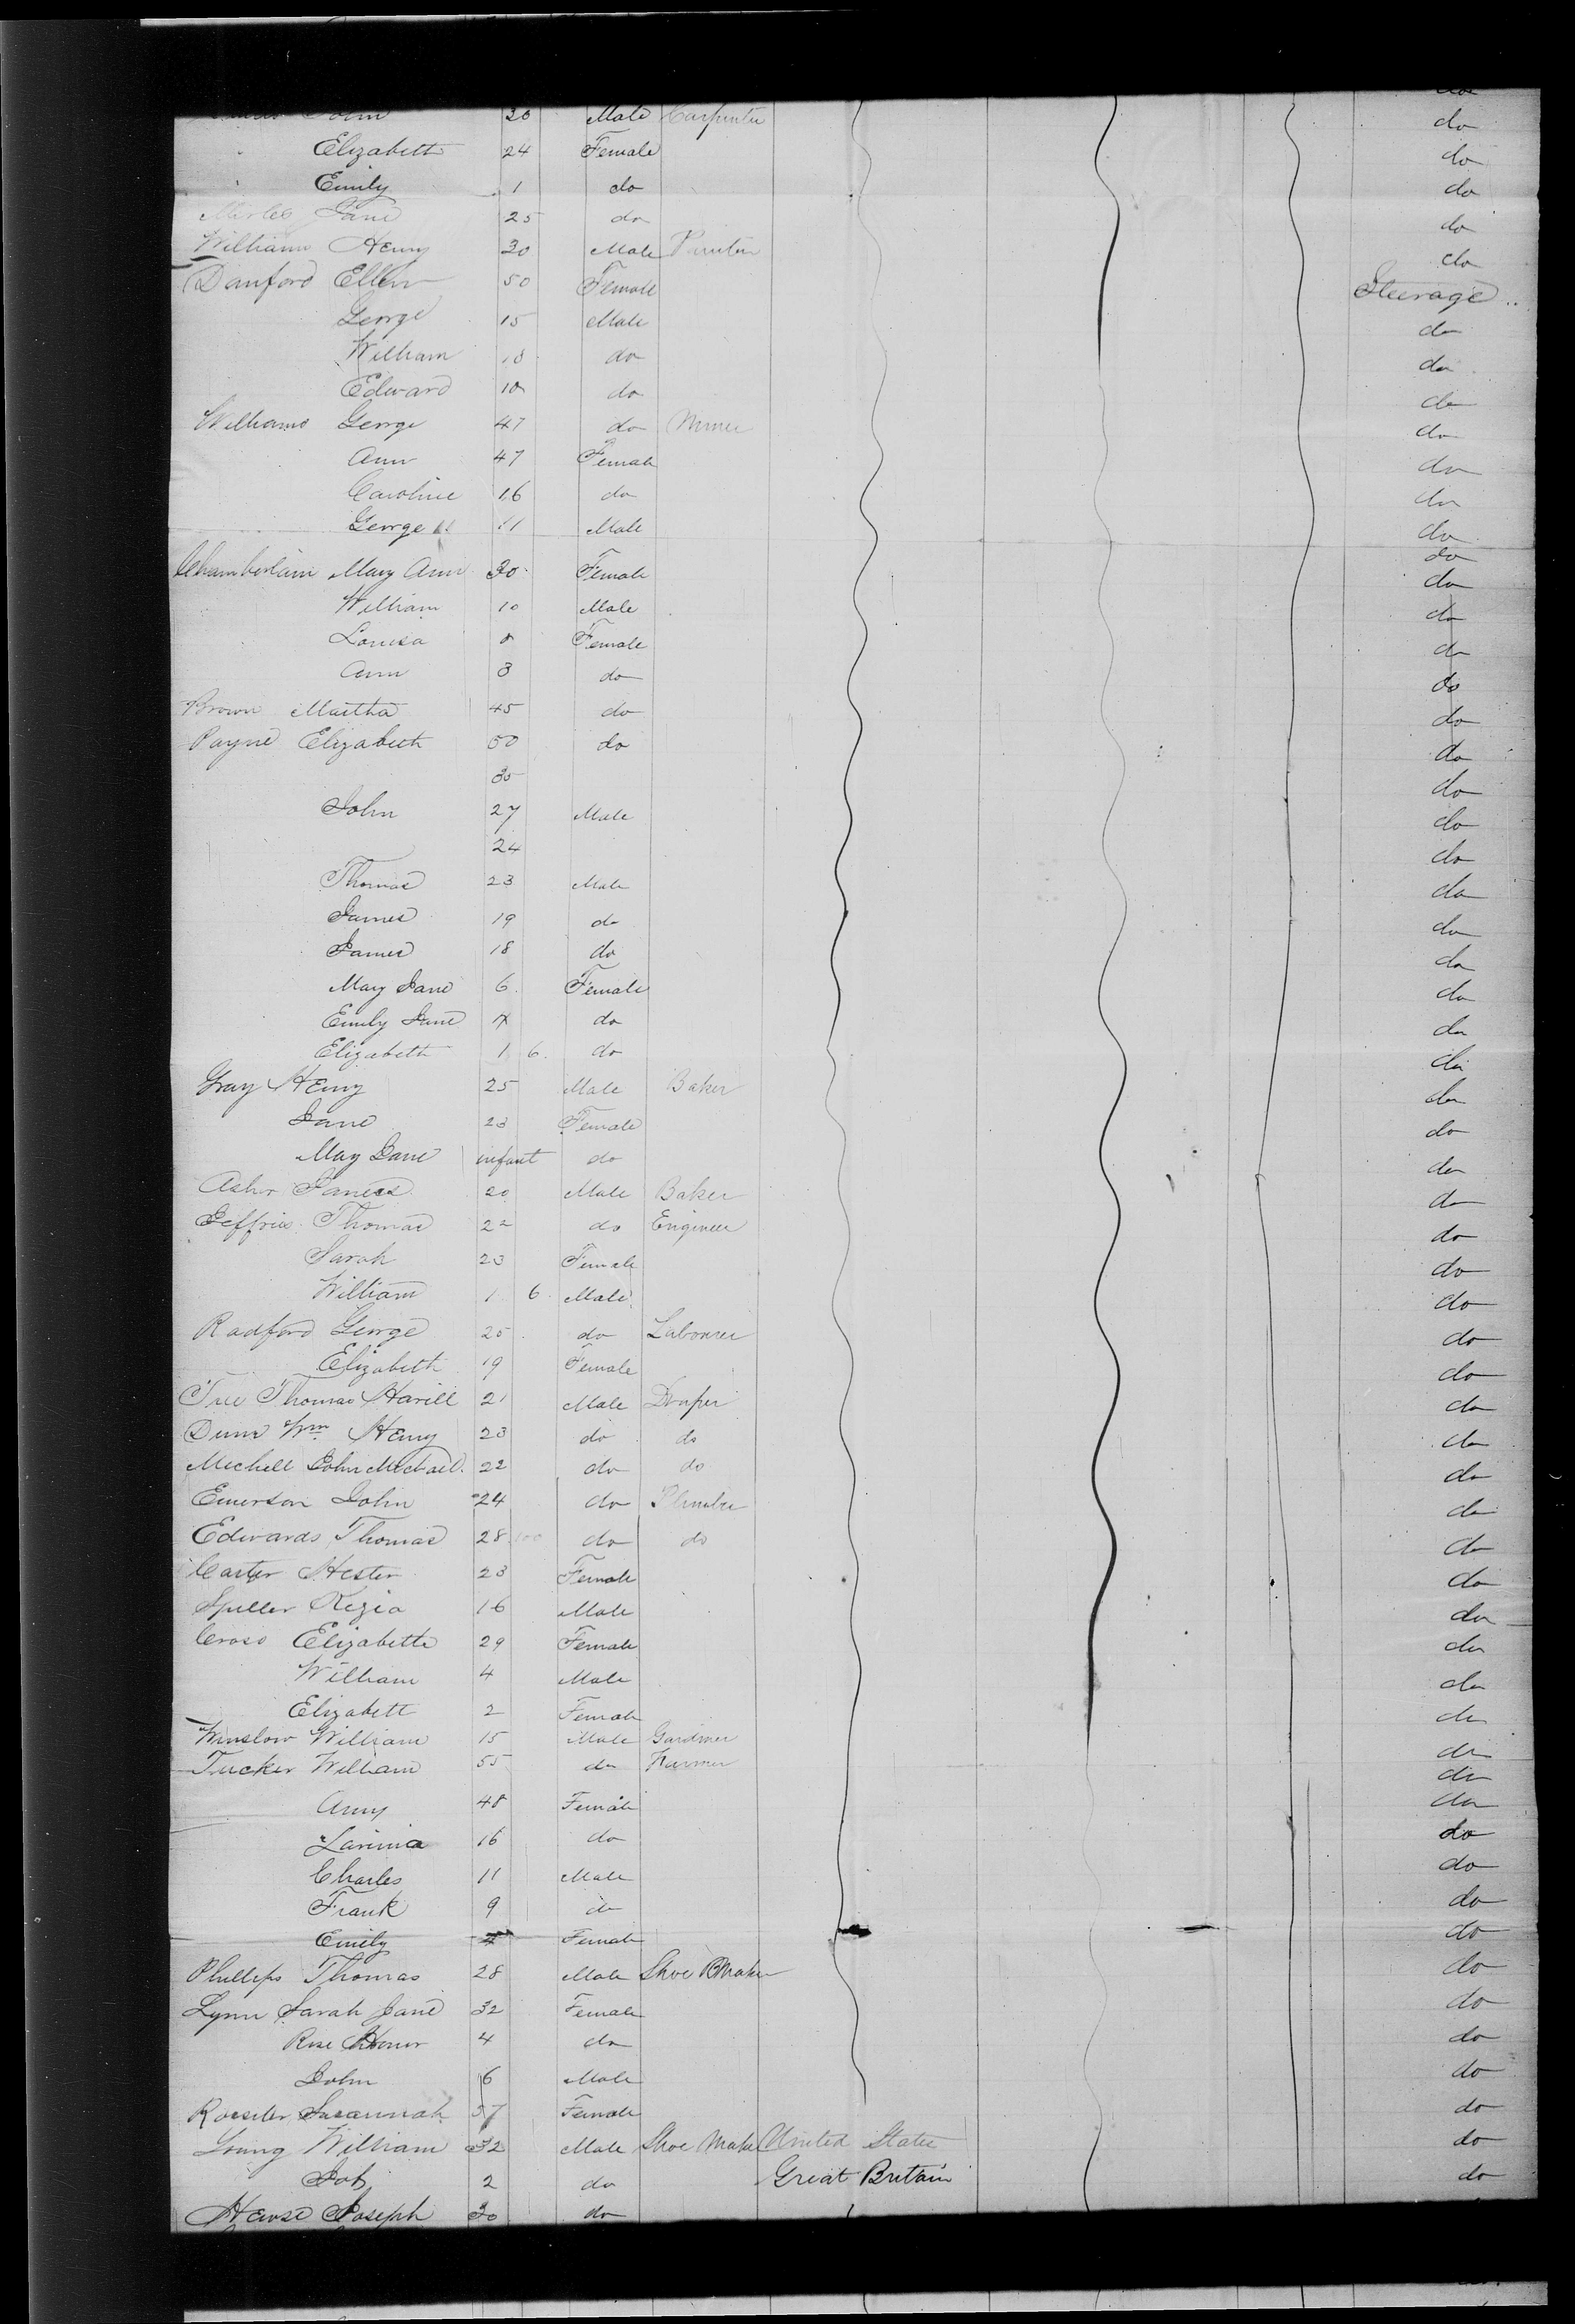 John 26 Male Carpenter do
Elizabeth 24 Female do
Emily 1 do do
Jane 25 do do
Williams Henry 30 Male do
Danford Ellen 50 Female Steerage
George 15 Male do
William 18 do do
Edward 10 do do
Williams George 47 do Miner do
Ann 47 Female do
Caroline 16 do do
George 11 Male do
do
Chamberlain Mary Ann 30 Female do
William 10 Male do
Louisa 8 Female do
Ann 3 do do
Brown Martha 45 do do
Payne Elizabeth 50 do do
35 do
John 27 Male do
24 do
Thomas 23 Male do
James 19 do do
James 18 do do
Mary Jane 6 Female do
Emily Jane do do
Elizabeth 1 6 do do
Gray Henry 25 Male Baker do
Jane 23 Female do
May Jane infant do do
James 20 Male Baker do
Jeffries Thomas 22 do Engineer do
Sarah 23 Female do
William 1 6 Male do
Radford George 25 do Labourer do
Elizabeth 19 Female do
Thomas Havill 21 Male Draper do
Dunn Wm Henry 23 do do do
Michell John Michael 22 do do do
Emerson John 24 do Plumber do
Edwards Thomas 28 do do do
Carter Hester 23 Female do
Spiller Kezia 16 Male do
Cross Elizabeth 29 Female do
William 4 Male do
Elizabeth 2 Female do
Winslow William 15 Male Gardiner do
Tucker William 55 do Farmer do
Amy 48 Female do
Lavinia 16 do do
Charles 11 Male do
Frank 9 do do
Emily Female do
Phillips Thomas 28 Male Shoe Maker do
Lynn Sarah Jane 32 Female do
Rose Honor 4 do do
John 6 Male do
Susannah 57 Female do
Young William 32 Male Shoe Maker United States do
Job 2 do Great Britain do
Joseph 30 do